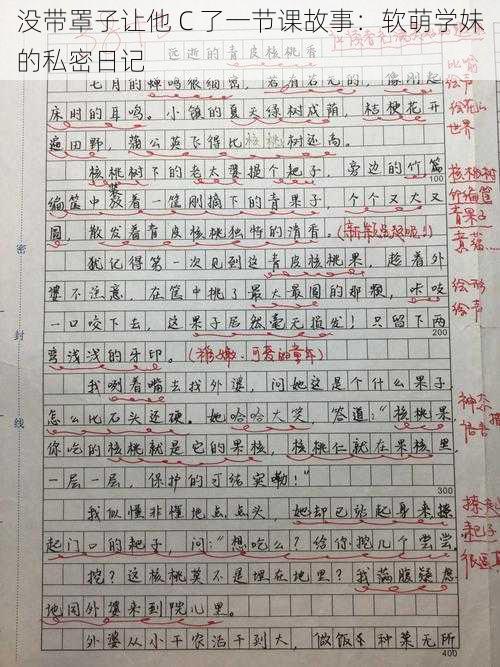 没带罩子让他C了一节课故事：软萌学妹
的私密日记
远逝的青皮核桃香
七月的蝉鸣很细密，若有若无的，像刚起
床时的耳鸣。小镇的夏天绿树成荫，桔梗花开
遍田野，蒲公英飞得比核桃树还高。
核桃树下的老太婆摸个耙子，旁边的竹篇
100
编筐中装着一筐刚摘下的青果子，个个又大又
圆，散发着青皮核桃独特的清香。
犹记得第一次见到这青皮核桃果，趁着外
婆不注意，在筐中挑了最大最圆的那颗，咔咬
一口咬下去，这果子居然毫无损发！只留下两
200
弯浅浅的牙印。（稚嫩、可爱的童年）
我咧着嘴去找外婆，问她这是个什么果子，
怎么比石头还硬。她哈哈大笑 答道：“核桃果，
你吃的核桃就是它的果核，核桃仁就在果核里，
一层一层，保护的可结实嘞！”
300
我似懂非懂地点点头，她却已站起身来操
起门口的耙子，问：“想吃么？给你挖几个尝尝。
挖？这核桃莫不是埋在地里？我满腹疑虑
地同外婆来到院儿里。
外婆从小干农活干到大，做饭
种菜无所
400
密
封
线
比喻
绘声
世界
核桃树
竹编筐
青果子
绘形
绘声
神态
耙子